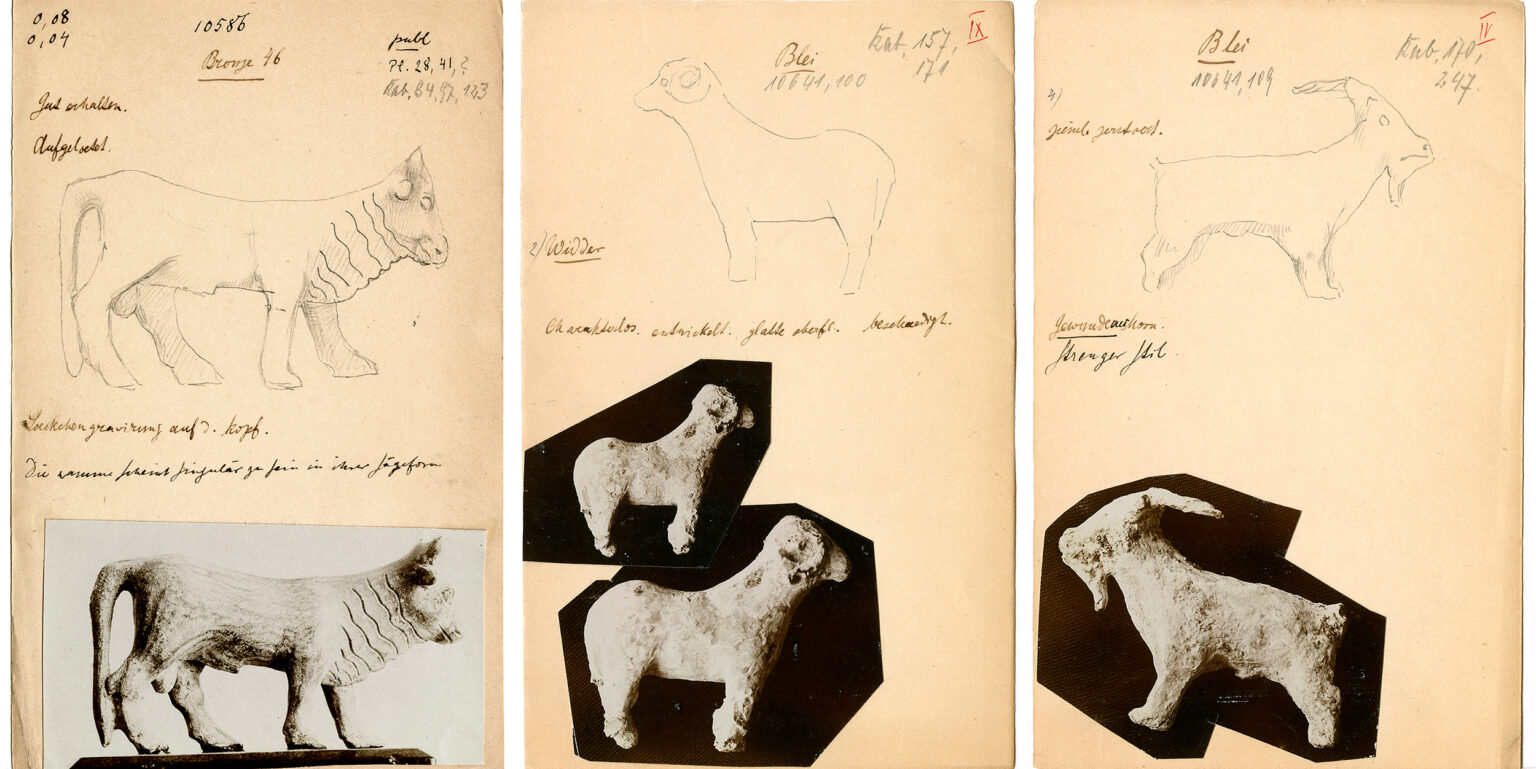 0,08
0,04
10586
Bronze 46
publ
Pl. 28, 41, ?
Kab. 84, 97, 123
Gut erhalten.
Aufgeloetet.
Loeckchengravirung auf d. Kopf.
Die wamme scheint singulär zu sein in ihrer Sägeform
IX
Kab. 157,
171
Blei
10641,100
2) Widder
Charakterlos. entwickelt. glatte oberfl. beschaedigt.
IV
Kab. 170,
247.
Blei
10641,109
4)
zieml. zerstoert.
Gewundenes horn.
Strenger Stil.